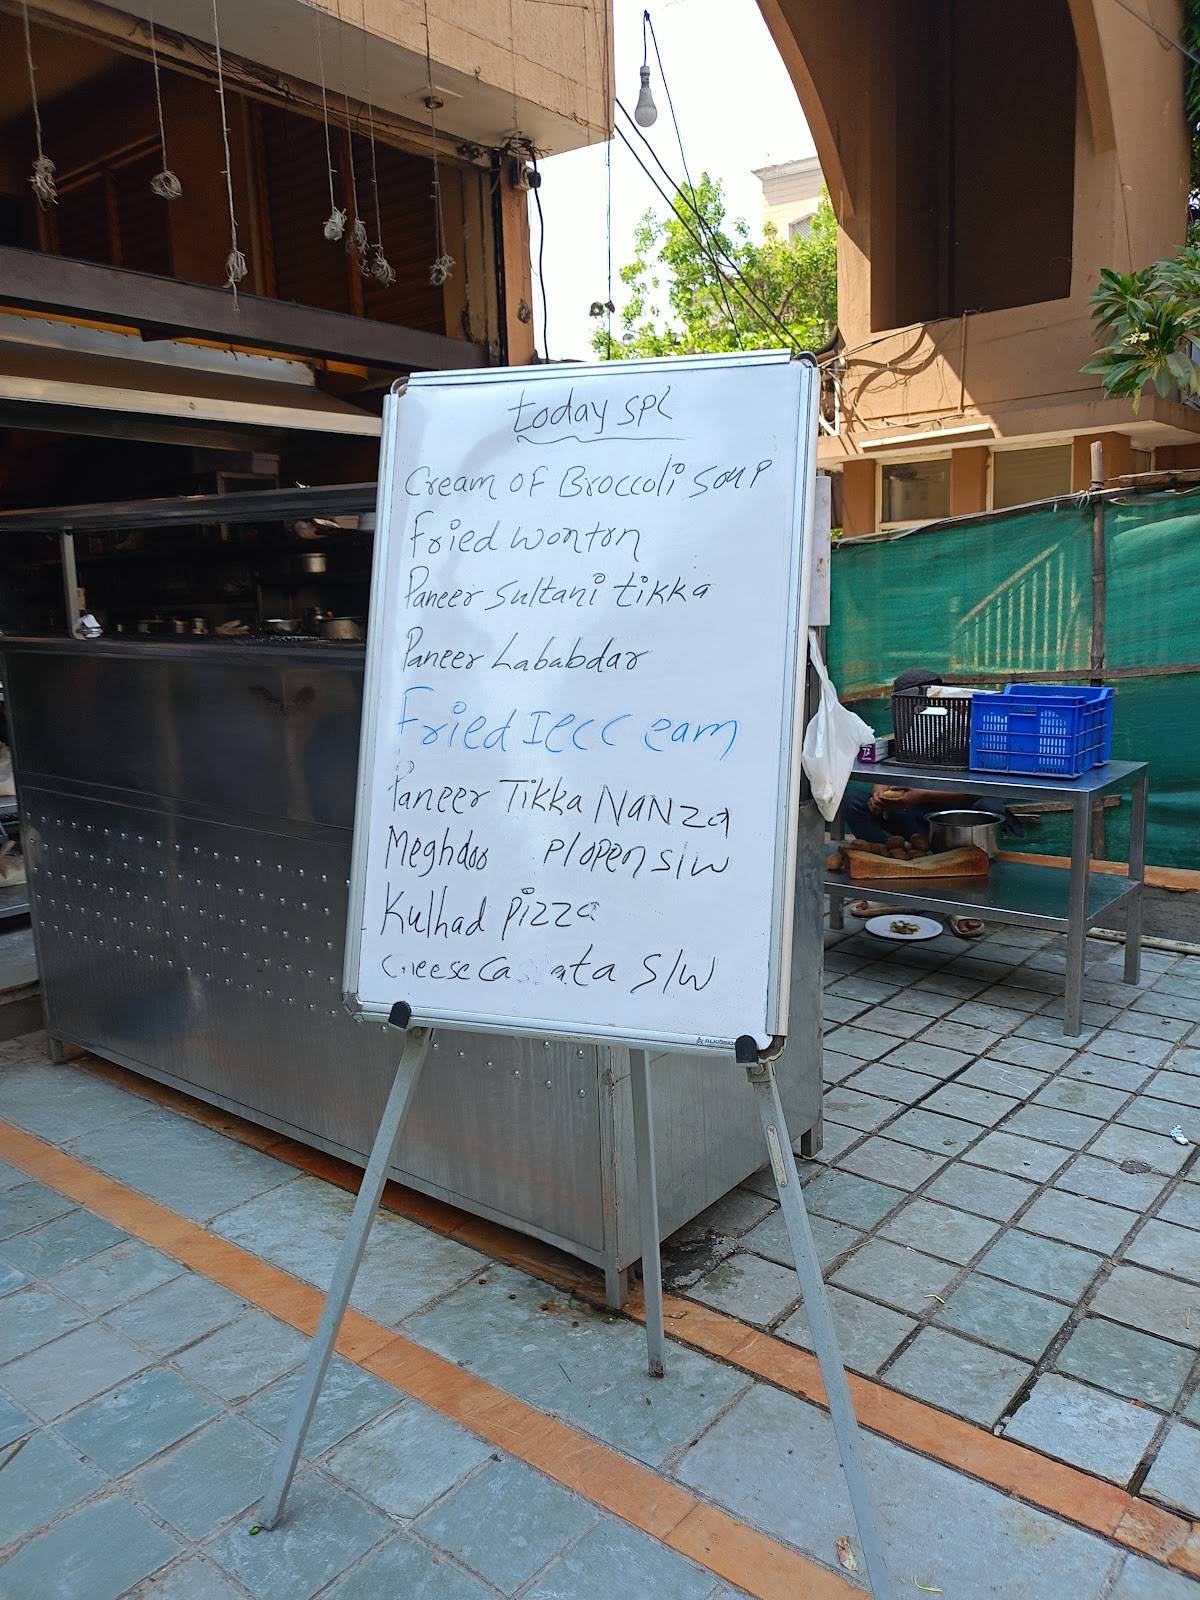 today SPL
Cream OF Broccoli Soup
Fried wonton
Paneer Sultani tikka
Paneer Lababdar
Fried Iec C eam
Paneer Tikka NaNZa
Meghdoo P/OPEN S/W
Kulhad Pizza
C eese Ca ata S/W